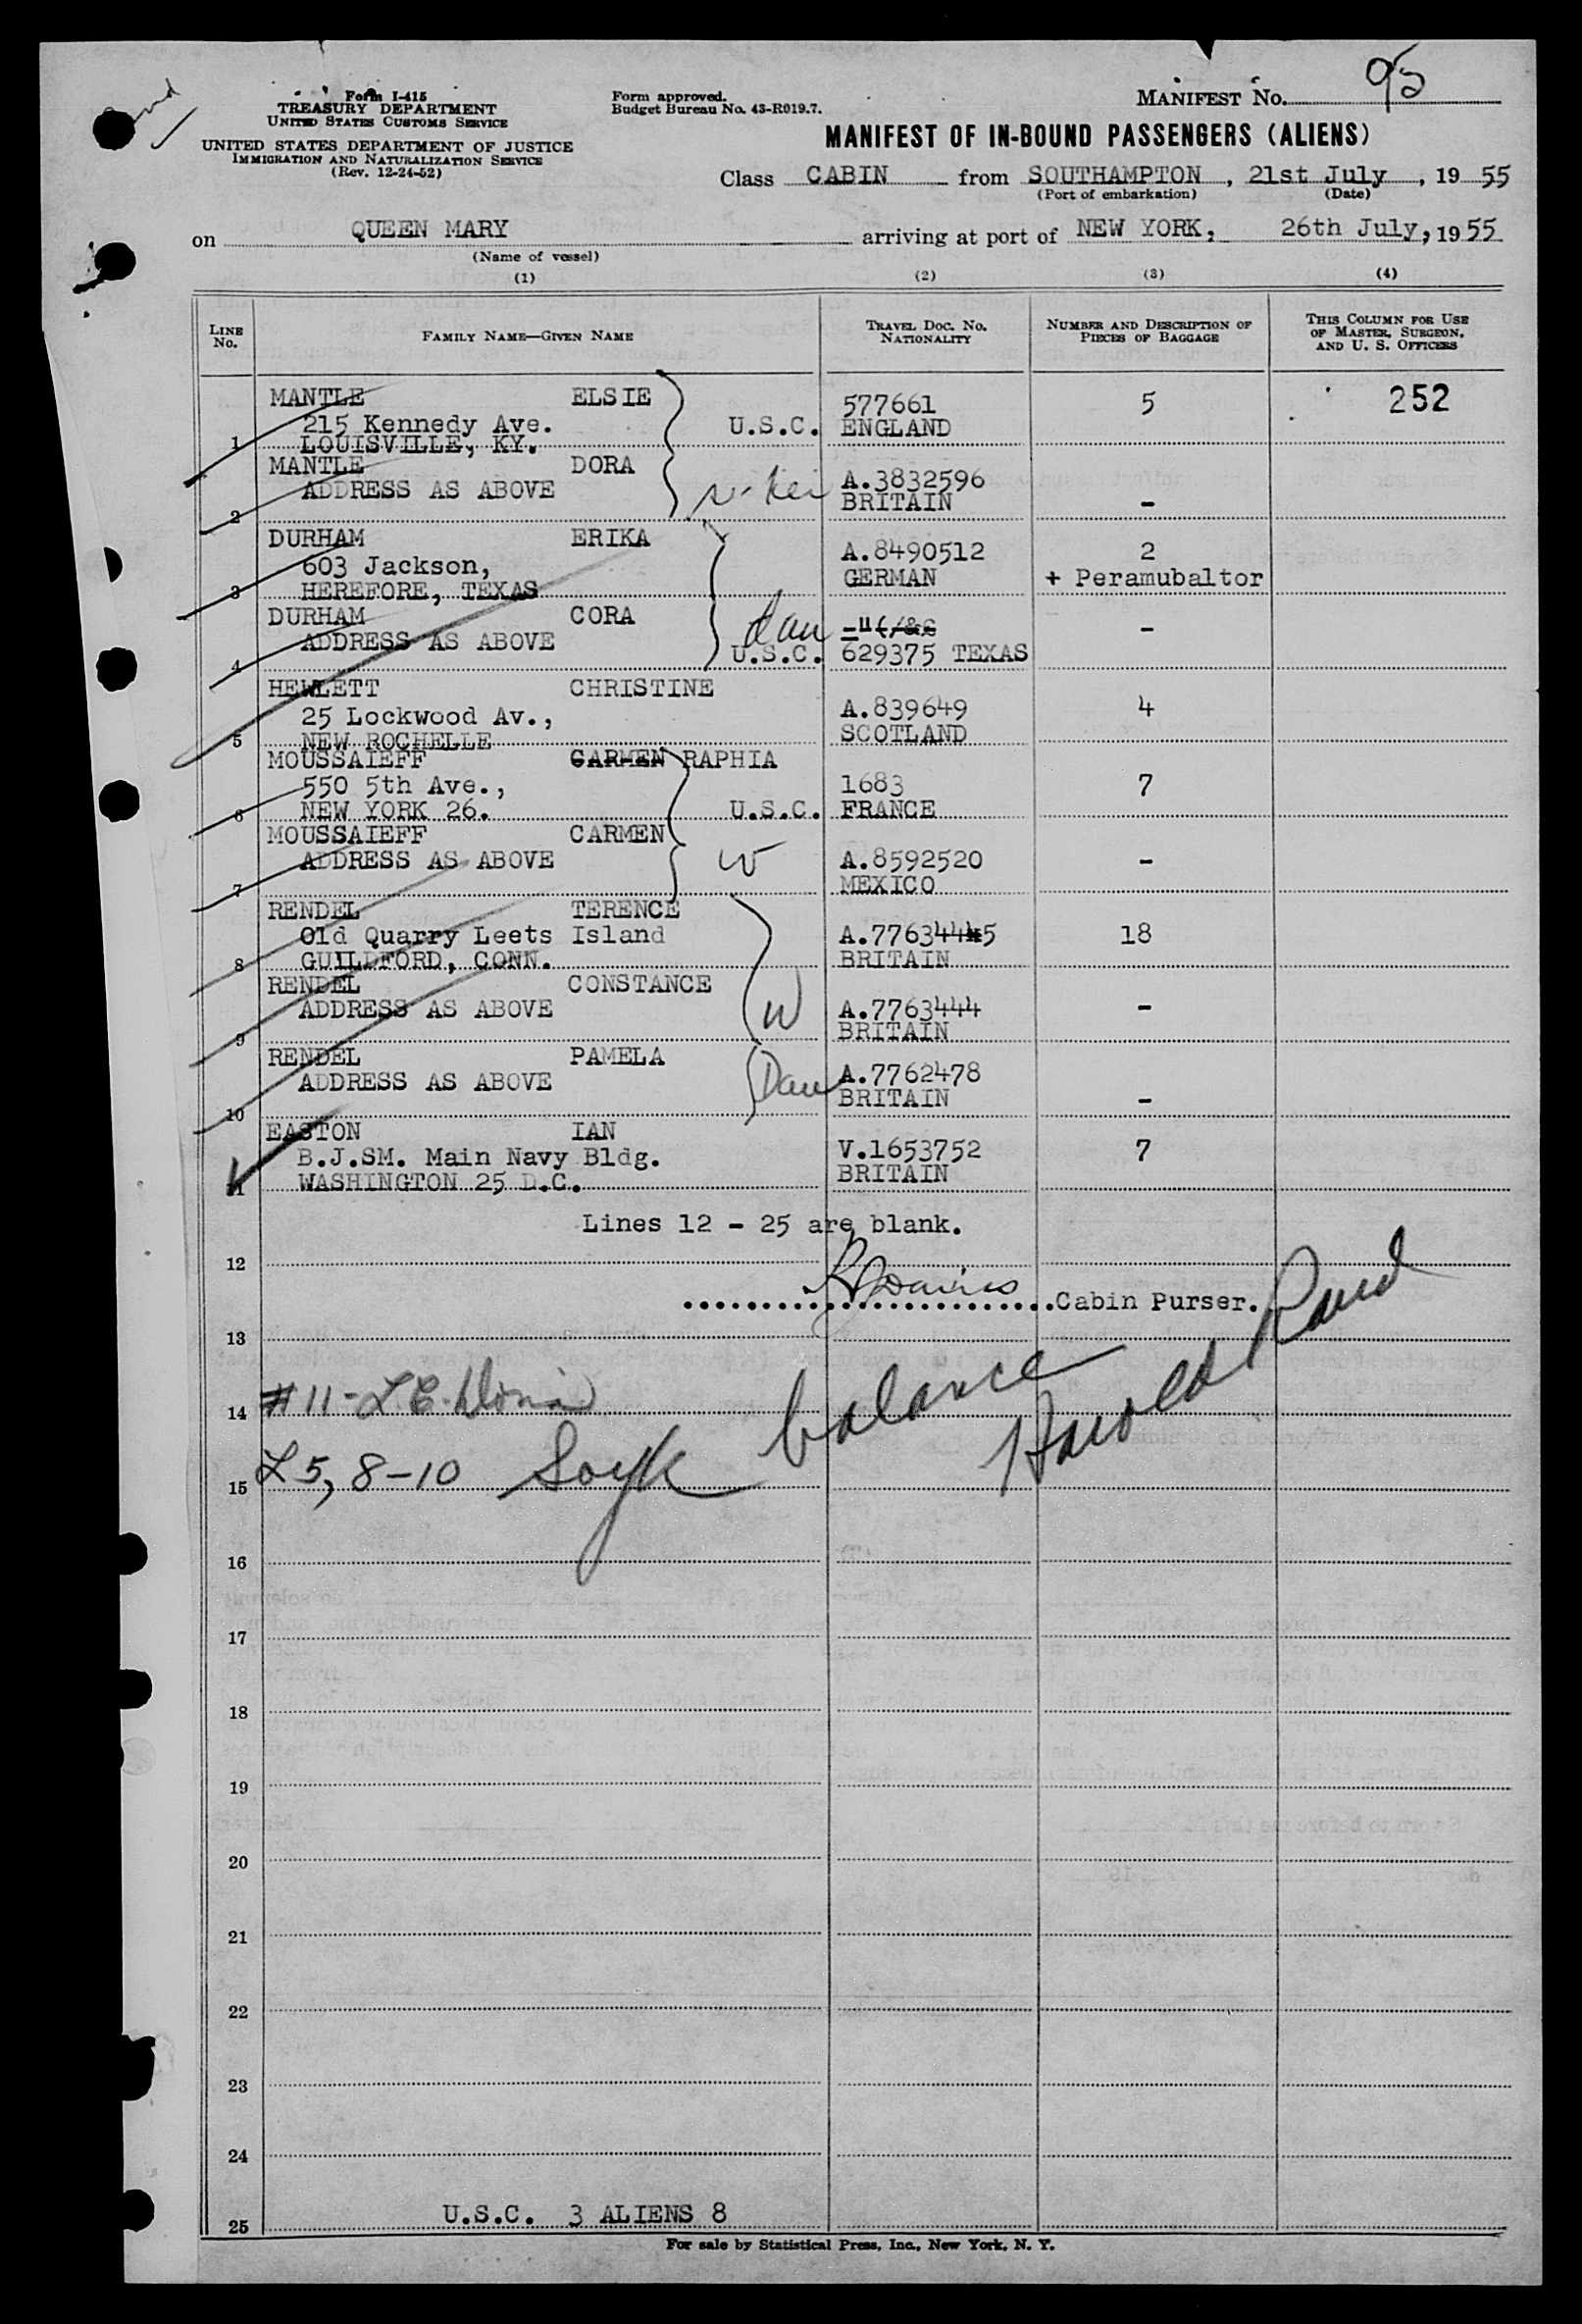 Form I-415
TREASURY DEPARTMENT
UNITED STATES CUSTOMS SERVICE
UNITED STATES DEPARTMENT OF JUSTICE
IMMIGRATION AND NATURALIZATION SERVICE
(Rev. 12-24-52)
Form approved.
Budget Bureau No. 43-R019.7.
MANIFEST No. 95
MANIFEST OF IN-BOUND PASSENGERS (ALIENS)
Class CABIN from SOUTHAMPTON, 21st July, 19 55
(Port of embarkation) (Date)
on QUEEN MARY arriving at port of NEW YORK, 26th July, 19 55
(Name of vessel)
(1) (2) (3) (4)
LINE No. FAMILY NAME—GIVEN NAME TRAVEL DOC. No. NATIONALITY NUMBER AND DESCRIPTION OF PIECES OF BAGGAGE THIS COLUMN FOR USE OF MASTER, SURGEON, AND U. S. OFFICERS
MANTLE ELSIE 577661 5 252
215 Kennedy Ave. U.S.C. ENGLAND
1 LOUISVILLE, KY.
MANTLE DORA A.3832596
ADDRESS AS ABOVE BRITAIN -
2
DURHAM ERIKA A.8490512 2
603 Jackson, GERMAN + Peramubaltor
3 HEREFORE, TEXAS
DURHAM CORA dau -
ADDRESS AS ABOVE U.S.C. 629375 TEXAS
4
HEWLETT CHRISTINE A.839649 4
25 Lockwood Av., SCOTLAND
5 NEW ROCHELLE
MOUSSAIEFF CARMEN RAPHIA 1683 7
550 5th Ave.,
6 NEW YORK 26. U.S.C. FRANCE
MOUSSAIEFF CARMEN A.8592520 -
ADDRESS AS ABOVE W MEXICO
7
RENDEL TERENCE A.7763445 18
Old Quarry Leets Island BRITAIN
8 GUILDFORD, CONN.
RENDEL CONSTANCE A.7763444 -
ADDRESS AS ABOVE W BRITAIN
9
RENDEL PAMELA A.7762478
ADDRESS AS ABOVE Dau BRITAIN -
10
EASTON IAN V.1653752 7
B.J.SM. Main Navy Bldg. BRITAIN
11 WASHINGTON 25 D.C.
Lines 12 - 25 are blank.
12
Cabin Purser.
13
balance Harold Rand
14 #11-
15 L 5, 8-10
16
17
18
19
20
21
22
23
24
25 U.S.C. 3 ALIENS 8
For sale by Statistical Press, Inc., New York, N. Y.